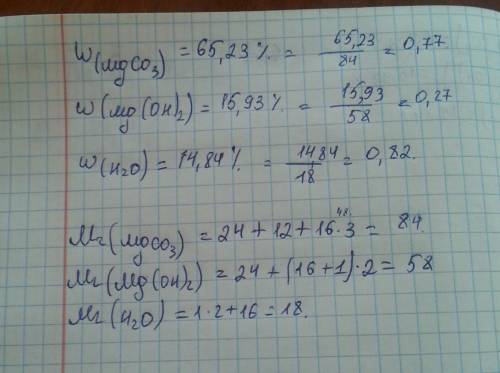 W(MgCO₃) = 65,23 % = 65,23/84 = 0,77
W(Mg(OH)₂) = 15,93 % = 15,93/58 = 0,27
W(H₂O) = 14,84 % = 1484/18 = 0,82.
48.
Mr(MgCO₃) = 24 + 12 + 16·3 = 84.
Mr(Mg(OH)₂) = 24 + (16+1)·2 = 58
Mr(H₂O) = 1·2 + 16 = 18.